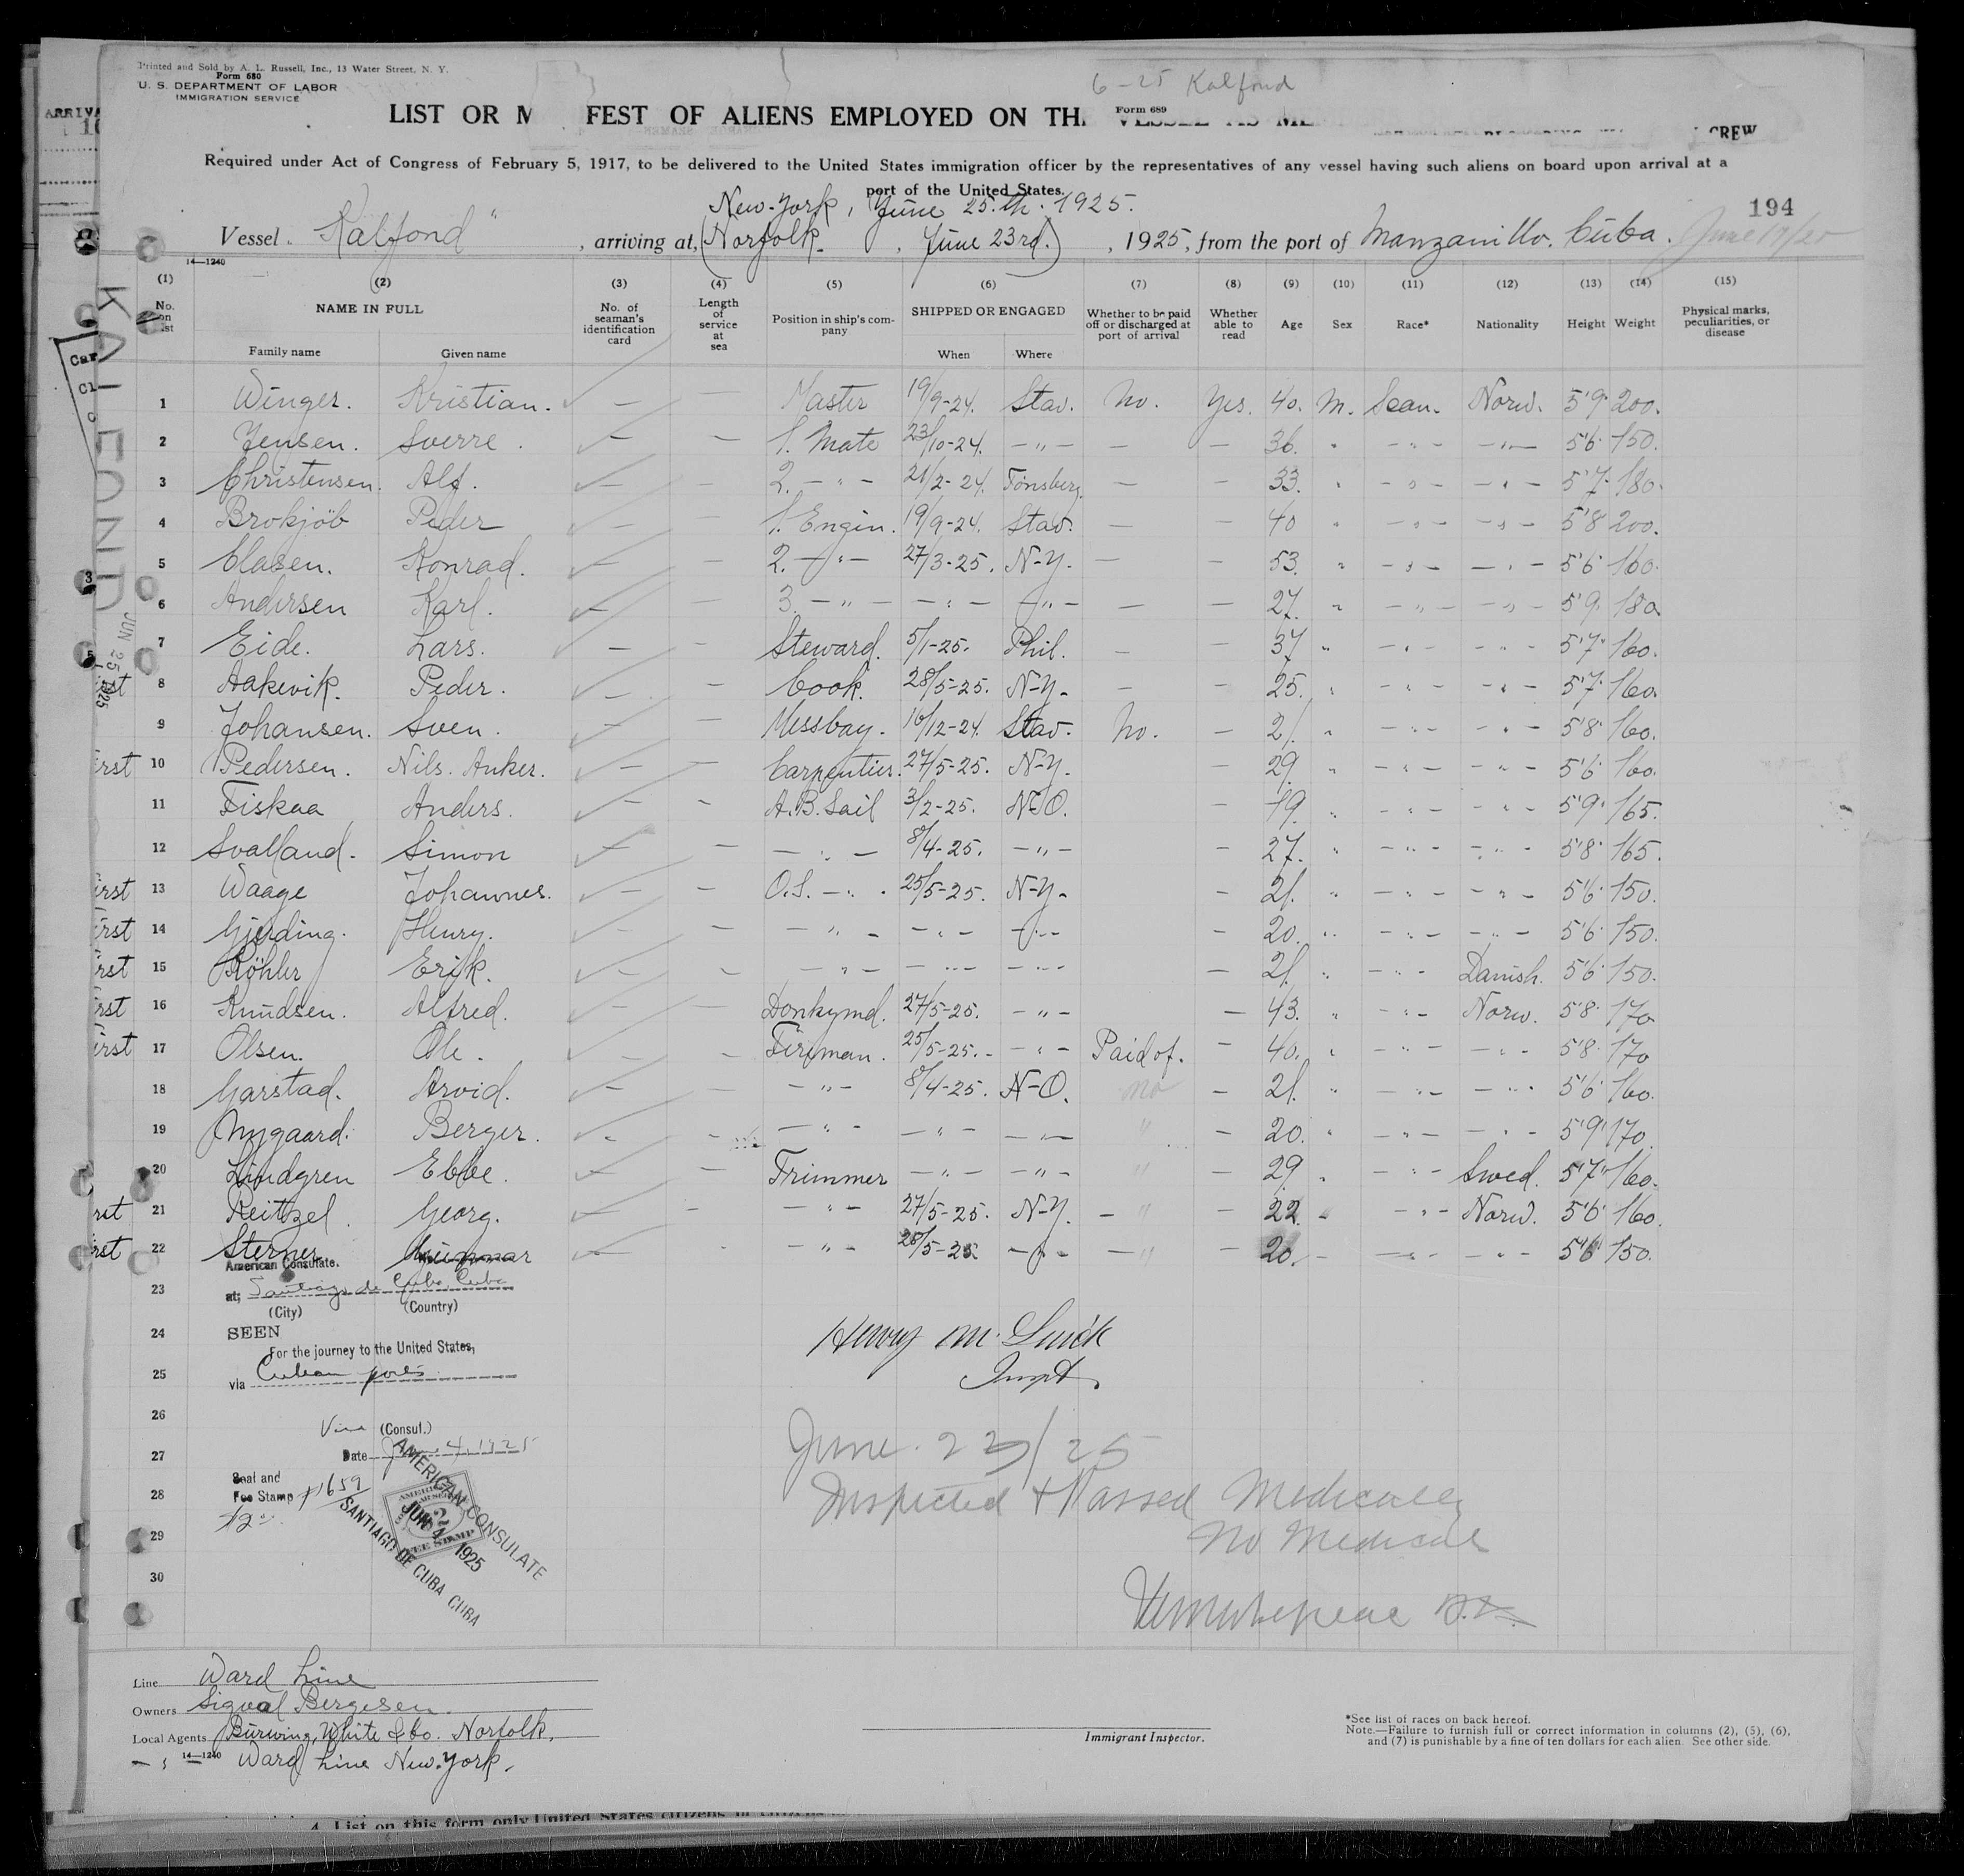 Printed and Sold by A. L. Russell, Inc., 13 Water Street, N. Y.
Form 680
U. S. DEPARTMENT OF LABOR
IMMIGRATION SERVICE
6-25 Kalfond
Form 689
LIST OR M FEST OF ALIENS EMPLOYED ON TH VESSEL AS ME CREW
Required under Act of Congress of February 5, 1917, to be delivered to the United States immigration officer by the representatives of any vessel having such aliens on board upon arrival at a
port of the United States.
New-York, June 25.th. 1925.
194
Vessel Kalfond, arriving at, (Norfolk, June 23rd.), 1925, from the port of Manzanillo. Cuba.
14-1240
(1) (2) (3) (4) (5) (6) (7) (8) (9) (10) (11) (12) (13) (14) (15)
No. on list
NAME IN FULL Family name Given name
No. of seaman's identification card
Length of service at sea
Position in ship's company
SHIPPED OR ENGAGED When Where
Whether to be paid off or discharged at port of arrival
Whether able to read
Age Sex Race* Nationality Height Weight
Physical marks, peculiarities, or disease
1 Winger. Kristian. — Master 19/9-24. Stav. No. Yes. 40. M. Scan. Norw. 5'9 200.
2 Jensen. Sverre. — — 1. Mate 23/10-24. —"— — — 36. " —"— —"— 5'6 150.
3 Christensen. Alf. — — 2. —"— 21/2-24. Tönsberg. — — 33. " —"— —"— 5'7 180.
4 Brokjöb Peder — — 1. Engin. 19/9-24. Stav. — — 40 " —"— —"— 5'8 200.
5 Clasen. Konrad. — — 2. —"— 27/3-25. N-Y. — — 53. " —"— —"— 5'6 160.
6 Andersen Karl. — — 3. —"— —"— —"— — — 27. " —"— —"— 5'9 180
7 Eide. Lars. — — Steward. 5/1-25. Phil. — — 37 " —"— —"— 5'7 160.
8 Aakevik. Peder. — — Cook. 28/5-25. N-Y. — — 25. " —"— —"— 5'7 160.
9 Johansen. Sven. — — Messbay. 16/12-24. Stav. No. — 21. " —"— —"— 5'8 160.
rst 10 Pedersen. Nils. Anker. — — Carpentier. 27/5-25. N-Y. — 29. " —"— —"— 5'6 160.
11 Fiskaa Anders. — — A.B. Sail 3/2-25. N-O. — 19. " —"— —"— 5'9 165.
12 Svalland. Simon — — —"— 8/4-25. —"— — 27. " —"— —"— 5'8 165.
irst 13 Waage Johannes. — — O.S. —"— 25/5-25. N-Y. — 21. " —"— —"— 5'6 150.
irst 14 Gjerding. Henry. — — —"— —"— —"— — 20. " —"— —"— 5'6 150.
rst 15 Röhler Erik. — — —"— —"— —"— — 21. " —"— Danish. 5'6 150.
rst 16 Knudsen. Alfred. — — Donkymd. 27/5-25. —"— — 43. " —"— Norw. 5'8 170
irst 17 Olsen. Ole. — — Fireman. 25/5-25. —"— Paid of. — 40. " —"— —"— 5'8 170
18 Garstad. Arvid. — — —"— 8/4-25. N-O. no — 21. " —"— —"— 5'6 160.
19 Nygaard. Berger. — — —"— —"— —"— " — 20. " —"— —"— 5'9 170.
20 Lindgren Ebbe. — — Trimmer —"— —"— " — 29. " —"— Swed. 5'7 160.
rst 21 Reitzel. Georg. — — —"— 27/5-25. N-Y. — " — 22. " —"— Norw. 5'6 160.
rst 22 Sterner Gunnar — —"— 28/5-25. —"— — " — 20. —"— —"— 5'6 150.
American Consulate.
23 at; Santiago de Cuba, Cuba
(City) (Country)
24 SEEN
For the journey to the United States,
25 via Cuban ports
Henry M.
Inspt.
26
Vice (Consul.)
27 Date June 4, 1925
June 23/25
Seal and
Fee Stamp 1659
28
Inspected & Passed Medically
29
No Medical
30
AMERICAN CONSULATE
JUN 4 1925
SANTIAGO DE CUBA CUBA
KALFOND
JUN 25 1925
Line Ward Line
Owners Sigval Bergesen.
Local Agents Burwing, White & Co. Norfolk.
—"— 14-1240 Ward Line New-York.
Immigrant Inspector.
*See list of races on back hereof.
Note.—Failure to furnish full or correct information in columns (2), (5), (6),
and (7) is punishable by a fine of ten dollars for each alien. See other side.
4. List on this form only United States citizens